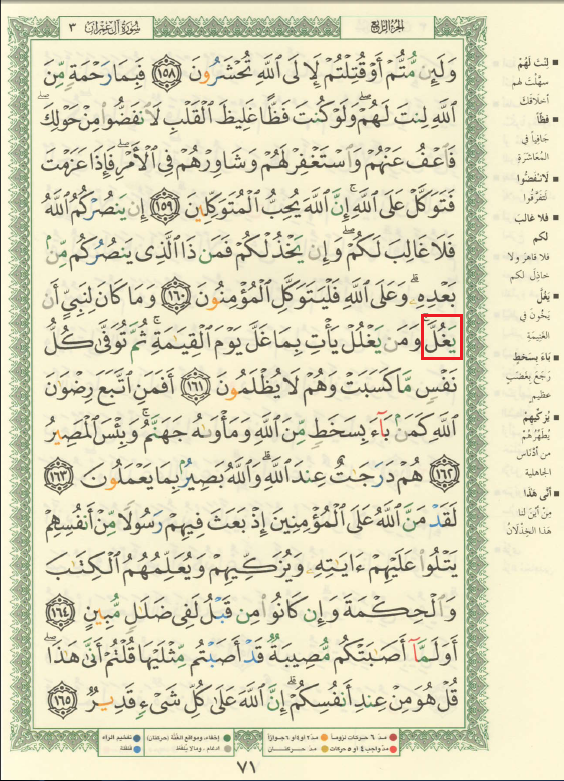 سُورَةُ آلِ عِمْرَانَ ٣
الجُزْءُ الرَّابِعُ
وَلَئِن مُّتُّمْ أَوْ قُتِلْتُمْ لَإِلَى ٱللَّهِ تُحْشَرُونَ ١٥٨ فَبِمَا رَحْمَةٍ مِّنَ
ٱللَّهِ لِنتَ لَهُمْ ۖ وَلَوْ كُنتَ فَظًّا غَلِيظَ ٱلْقَلْبِ لَٱنفَضُّوا۟ مِنْ حَوْلِكَ ۖ
فَٱعْفُ عَنْهُمْ وَٱسْتَغْفِرْ لَهُمْ وَشَاوِرْهُمْ فِى ٱلْأَمْرِ ۖ فَإِذَا عَزَمْتَ
فَتَوَكَّلْ عَلَى ٱللَّهِ ۚ إِنَّ ٱللَّهَ يُحِبُّ ٱلْمُتَوَكِّلِينَ ١٥٩ إِن يَنصُرْكُمُ ٱللَّهُ
فَلَا غَالِبَ لَكُمْ ۖ وَإِن يَخْذُلْكُمْ فَمَن ذَا ٱلَّذِى يَنصُرُكُم مِّنۢ
بَعْدِهِۦ ۗ وَعَلَى ٱللَّهِ فَلْيَتَوَكَّلِ ٱلْمُؤْمِنُونَ ١٦٠ وَمَا كَانَ لِنَبِىٍّ أَن
يَغُلَّ ۚ وَمَن يَغْلُلْ يَأْتِ بِمَا غَلَّ يَوْمَ ٱلْقِيَٰمَةِ ۚ ثُمَّ تُوَفَّىٰ كُلُّ
نَفْسٍ مَّا كَسَبَتْ وَهُمْ لَا يُظْلَمُونَ ١٦١ أَفَمَنِ ٱتَّبَعَ رِضْوَٰنَ
ٱللَّهِ كَمَنۢ بَآءَ بِسَخَطٍ مِّنَ ٱللَّهِ وَمَأْوَىٰهُ جَهَنَّمُ ۚ وَبِئْسَ ٱلْمَصِيرُ
١٦٢ هُمْ دَرَجَٰتٌ عِندَ ٱللَّهِ ۗ وَٱللَّهُ بَصِيرٌۢ بِمَا يَعْمَلُونَ ١٦٣
لَقَدْ مَنَّ ٱللَّهُ عَلَى ٱلْمُؤْمِنِينَ إِذْ بَعَثَ فِيهِمْ رَسُولًا مِّنْ أَنفُسِهِمْ
يَتْلُوا۟ عَلَيْهِمْ ءَايَٰتِهِۦ وَيُزَكِّيهِمْ وَيُعَلِّمُهُمُ ٱلْكِتَٰبَ
وَٱلْحِكْمَةَ وَإِن كَانُوا۟ مِن قَبْلُ لَفِى ضَلَٰلٍ مُّبِينٍ ١٦٤
أَوَلَمَّآ أَصَٰبَتْكُم مُّصِيبَةٌ قَدْ أَصَبْتُم مِّثْلَيْهَا قُلْتُمْ أَنَّىٰ هَٰذَا ۖ
قُلْ هُوَ مِنْ عِندِ أَنفُسِكُمْ ۗ إِنَّ ٱللَّهَ عَلَىٰ كُلِّ شَىْءٍ قَدِيرٌ ١٦٥
■ لِنْتَ لَهُمْ
سهَّلْتَ لهم
أخلاقك
■ فظًّا
جافِياً في
المُعَاشَرَةِ
■ لانْفَضُّوا
لَتَفَرَّقُوا
■ فلا غالبَ
لكم
فلا قاهِرَ ولا
خاذِلَ لكم
■ يَغُلَّ
يَخُونَ في
الغَنِيمَةِ
■ بَاءَ بسَخَطٍ
رَجَعَ بغَضَبٍ
عظيم
■ يُزَكِّيهِمْ
يُطَهِّرُهُمْ
من أدْنَاسِ
الجاهلية
■ أنَّى هَذَا
مِنْ أَيْنَ لنا
هَذا الخِذْلَانُ
مدّ ٦ حركات لزوماً
مدّ ٢ أو ٤ أو ٦ جوازاً
إخفاء، ومواقع الغُنَّة (حركتان)
تفخيم الراء
مدّ واجب ٤ أو ٥ حركات
مدّ حركتان
ادغام ، وما لا يُلفَظ
قلقلة
٧١